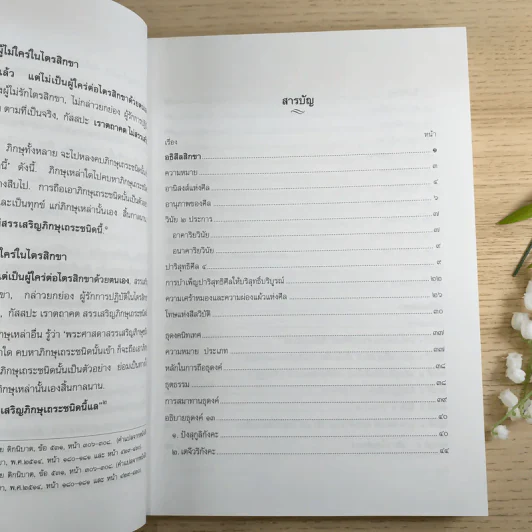 ผู้ไม่ใคร่ในไตรสิกขา
แล้ว แต่ไม่เป็นผู้ใคร่ต่อไตรสิกขาด้วยตนเอง
ผู้ไม่รักไตรสิกขา, ไม่กล่าวยกย่อง ผู้รักการปฏิบัติ
ตามที่เป็นจริง, กัสสปะ เราตถาคต ไม่สรรเสริญ
ภิกษุทั้งหลาย จะไปหลงคบภิกษุเถระชนิดนั้น
นี้" ดังนี้. ภิกษุเหล่าใดไปคบหาภิกษุเถระ
างสืบไป. การถือเอาภิกษุเถระชนิดนั้นเป็นตัวอย่าง
และเป็นทุกข์ แก่ภิกษุเหล่านั้นเอง สิ้นกาลนาน.
สรรเสริญภิกษุเถระชนิดนี้.
ใคร่ในไตรสิกขา
ต่เป็นผู้ใคร่ต่อไตรสิกขาด้วยตนเอง,
ขา, กล่าวยกย่อง ผู้รักการปฏิบัติในไตรสิกขา
, กัสสปะ เราตถาคต สรรเสริญภิกษุเถระชนิดนี้
ภิกษุเหล่าอื่น รู้ว่า "พระศาสดาสรรเสริญภิกษุ
าใด คบหาภิกษุเถระชนิดนั้นเข้า ก็จะถือเอา
ภิกษุเถระชนิดนั้นเป็นตัวอย่าง ย่อมเป็นทาง
ภิกษุเหล่านั้นเองสิ้นกาลนาน.
เสริญภิกษุเถระชนิดนี้แล"
สารบัญ
เรื่อง หน้า
อธิสีลสิกขา ๑
ความหมาย ๓
อานิสงส์แห่งศีล ๔
อานุภาพของศีล ๖
วินัย ๒ ประการ ๗
อาคาริยวินัย ๗
อนาคาริยวินัย ๙
ปาริสุทธิศีล ๔ ๙
การบำเพ็ญปาริสุทธิศีลให้บริสุทธิ์บริบูรณ์ ๒๒
ความเศร้าหมองและความผ่องแผ้วแห่งศีล ๒๖
โทษแห่งสีลวิบัติ ๓๐
ธุดงคนิทเทศ ๓๗
ความหมาย ประเภท ๓๗
หลักในการถือธุดงค์ ๓๘
ธุตธรรม ๓๘
การสมาทานธุดงค์ ๓๙
อธิบายธุดงค์ ๑๓ ๔๐
๑. ปังสุกูลิกังคะ ๔๐
๒. เตจีวริกังคะ ๔๔